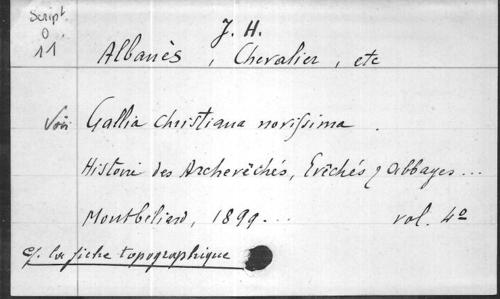 Script
O
11
J. H.
Albanès, Chevalier, etc
Voir Gallia christiana novissima.
Histoire des Archevêchés, Evêchés & abbayes...
Montbéliard, 1899... vol. 4º
cf. la fiche topographique